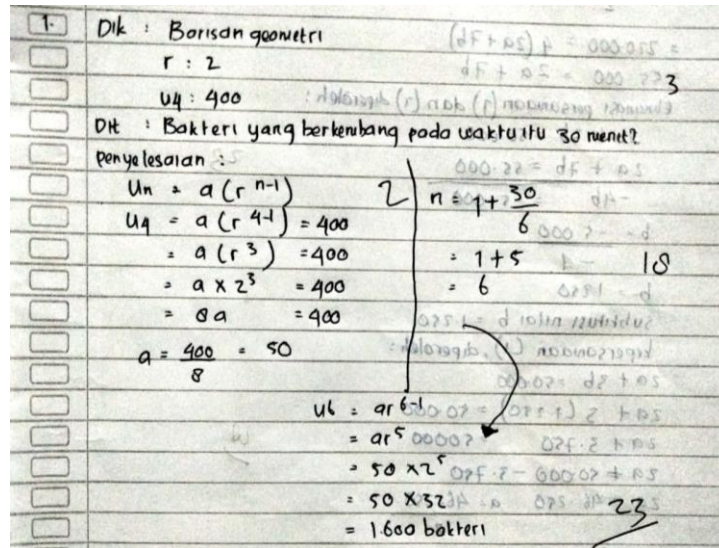 1. Dik : Barisan geometri
r : 2
3
U4 : 400
Dit : Bakteri yang berkembang pada waktu itu 30 menit?
Penyelesaian :
Un = a (r^n-1)
U4 = a (r^4-1) = 400
= a (r^3) = 400
= a x 2^3 = 400
= 8a = 400
a = 400/8 = 50
2
n = 1 + 30/6
= 1 + 5
18
= 6
U6 = ar^6-1
= ar^5
= 50 x 2^5
= 50 x 32
= 1.600 bakteri
23